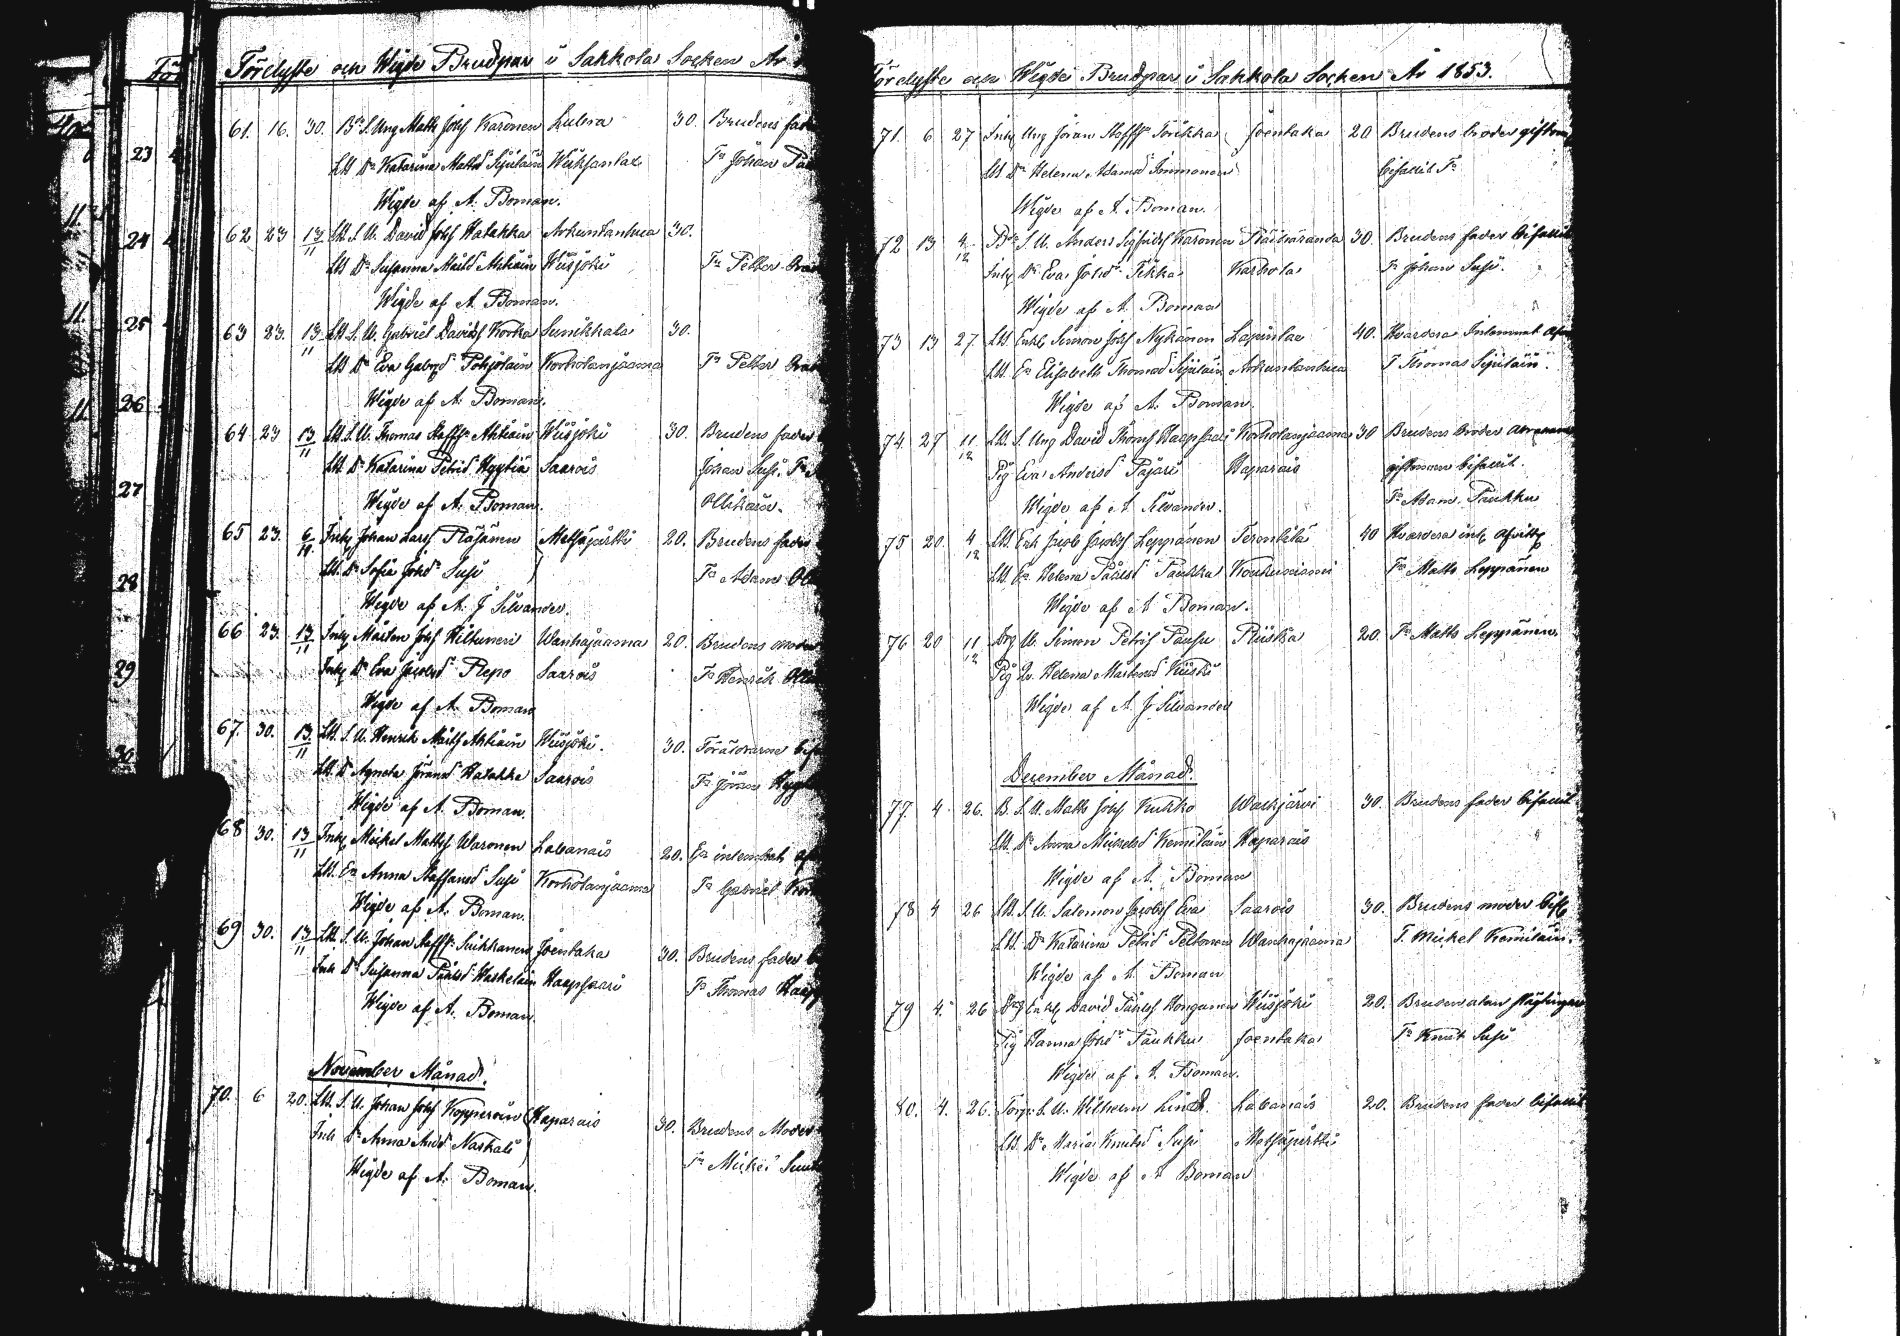 Förelyste och Wigde Brudpar i Sakkola Socken År
61. 16. 30. Bd S. Ung Matts Johsf Karonen Lulina 30. Brudens fad
Ltt Dr Katarina Mattsd Sipiläin Wiiksantax Fn Johan
Wigde af A. Boman.
62 23 13/11 Ltt S. U. David Johsf Hatakka Arkuntanhua 30.
Ltt Dr Susanna Mårtd Ahtiain Wiisjoki Fn Petter
Wigde af A. Boman.
63 23. 13/11 Ltt S. U. Gabriel Davidsf Korka Sunikkala 30.
Ltt Dr Eva Gabrd Pohjolain Korholanjaama Fn Petter
Wigde af A. Boman.
64 23 13/11 Ltt S. U. Thomas Staffs Ahtiain Wiisjoki 30. Brudens fader
Ltt Dr Katarina Petrid Hyytiä Saarois Johan Susi. Fn
Wigde af A. Boman. Ollikain.
65 23. 6/11 Inh Johan Larsf Pläjänen Metsäpirtti 20. Brudens fader
Ltt. Dr Sofia Johd Susi Fn Adam
Wigde af A. J Silvander.
66 23. 13/11 Inh Mårten Johsf Kiltunen Wanhajaama 20. Brudens moder
Inh Dr Eva Jacobsd Repo Saarois Fn Henrik
Wigde af A. Boman
67. 30. 13/11 Ltt. S. U. Henrik Mårtsf Ahtiain Wiisjoki. 30. Föräldrarne
Ltt. Dr Agneta Göransd Hatakka Saarois Fn Göran
Wigde af A. Boman.
68 30. 13/11 Inh Mickel Mattsf Waronen Labanais 20. En intembat
Ltt. En Anna Staffansd Susi Korholanjaama Fn Gabriel
Wigde af A. Boman.
69 30. 13/11 Ltt S. U. Johan Staffs Suikkanen Joentaka 30. Brudens fader
Inh Dr Susanna Pålsd Haskelain Haapsaari Fn Thomas
Wigde af A. Boman.
November Månad.
70. 6 20. Ltt. S. U. Johan Johsf Kopperoin Haparais 30. Brudens Moder
Inh Dr Anna And Naskali Fn Mickel
Wigde af A. Boman.
Förelyste och Wigde Brudpar i Sakkola Socken År 1853.
71. 6 27 Inh Ung Jöran Stoffs Torikka Joentaka 20 Brudens broder giftom
Ltt Dr Helena Adamsd Immonen bifallit Fn
Wigde af A. Boman.
72 13 4/12 Bd S. U. Anders Sigfridsf Karonen Räisäranda 30. Brudens fader bifallit
Inh Dr Eva Johd Tikka Karhola Fn Johan Susi.
Wigde af A. Boman
73 13 27 Ltt Enkl Simon Johsf Nykänen Lapinlax 40. Hvardera Intemerat
Ltt. En Elisabeth Thomasd Sipiläin Arkuntanhua F Thomas Sipiläin.
Wigde af A. Boman.
74. 27 11/12 Ltt. S. Ung David Thomsf Haapsaari Korholanjaama 30 Brudens broder
Pig Eva Andersd Pajari Haparais giftoman bifallit.
Wigde af A Silvander. Fn Adam Paukku
75 20. 4/12 Ltt. Enk Jacob Jacobsf Leppänen Terentilä 40 Hvardera int afvitt
Ltt En Helena Pålsd Paukku Koukunniemi Fn Matts Leppänen
Wigde af A Boman.
76 20 11/12 Drg U. Simon Petrisf Pausu Riiska 20. Fn Matts Leppänen
Pig Qv. Helena Mårtensd Kiiski
Wigde af A J Silvander
December Månad.
77. 4. 26. B. S. U. Matts Johsf Kukko Walkjärvi 30. Brudens fader bifallit
Ltt. Dr Anna Mickelsd Kemiläin Haparais
Wigde af A. Boman
78 4 26 Ltt. S. U. Salomon Jacobsf Eva Saarois 30. Brudens moder bifl
Ltt. Dr Katarina Petrid Peltonen Wanhajaama F. Mickel Kemiläin.
Wigde af A. Boman
79 4. 26 Drg Enkl David Pålsf Kongunen Wiisjoki 20. Bruden utan slägtingar
Pig Hanna Johd Paukku Joentaka Fn Knut Susi
Wigde af A. Boman.
80. 4. 26. Torp. S. U. Wilhelm Lind. Labanais 20. Brudens fader bifallit
Ltt. Dr Maria Knutsd Susi Metsäpirtti
Wigde af A Boman